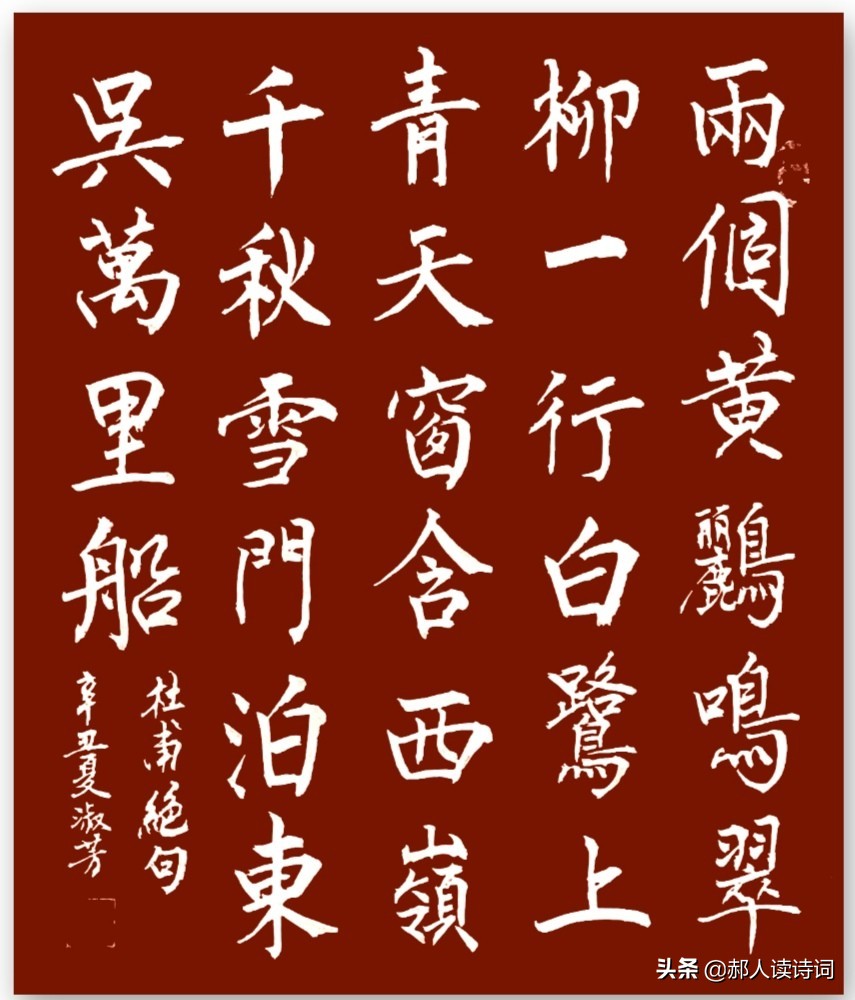 兩個黄鸝鳴翠
柳一行白鷺上
青天窗含西嶺
千秋雪門泊東
吳萬里船
杜甫絕句
辛丑夏淑芳
头条 @郝人读诗词